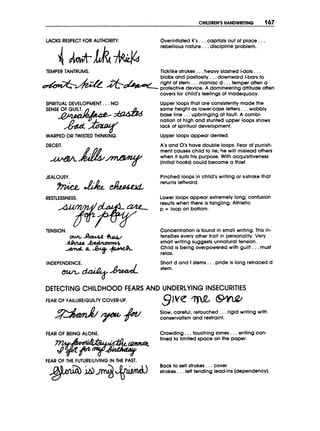 CHILDREN'S HANDWRITING 167
LACKS RESPECT FOR AUTHORITY.
I don't like tricks
Overinflated K's . . . capitals out of place . . .
rebellious nature . . . discipline problem.
TEMPER TANTRUMS.
Ticklike strokes . . . heavy slashed i-dots . . .
blobs and pastosity . . . downward t-bars to
right of stem . . . maniac d . . . temper often a
protective device. A domineering attitude often
covers for child's feelings of inadequacy.
SPIRITUAL DEVELOPMENT . . . NO
SENSE OF GUILT.
bad today
Upper loops that are consistently made the
same height as lower-case letters . . . wobbly
base line . . . upbringing at fault. A combi-
nation of high and stunted upper loops shows
lack of spiritual development.
WARPED OR TWISTED THINKING.
Upper loops appear dented.
DECEIT.
kills many
A's and O's have double loops. Fear of punish-
ment causes child to lie; he will mislead others
when it suits his purpose. With acquisitiveness
(initial hooks) could become a thief.
JEALOUSY.
mice like cheese
Pinched loops in child's writing or s-stroke that
returns leftward.
RESTLESSNESS.
sunny days are
for play
Lower loops appear extremely long; confusion
results when there is tangling. Athletic
p = loop on bottom.
TENSION.
our house has
three bedrooms
and a big porch
Concentration is found in small writing. This in-
tensifies every other trait in personality. Very
small writing suggests unnatural tension.
Child is being overpowered with guilt . . . must
relax.
INDEPENDENCE.
our daily bread
Short d and t stems . . . pride is long retraced d
stem.
DETECTING CHILDHOOD FEARS AND UNDERLYING INSECURITIES
FEAR OF FAILURE/GUILTY COVER-UP.
give me one
Thank you for
Slow, careful, retouched . . . rigid writing with
conservatism and restraint.
FEAR OF BEING ALONE.
My favorite
I got for my birthday
Crowding . . . touching zones . . . writing con-
fined to limited space on the paper.
FEAR OF THE FUTURE/LIVING IN THE PAST.
Gloria is my friend
Back to self strokes . . . cover
strokes . . . left tending lead-ins (dependency).